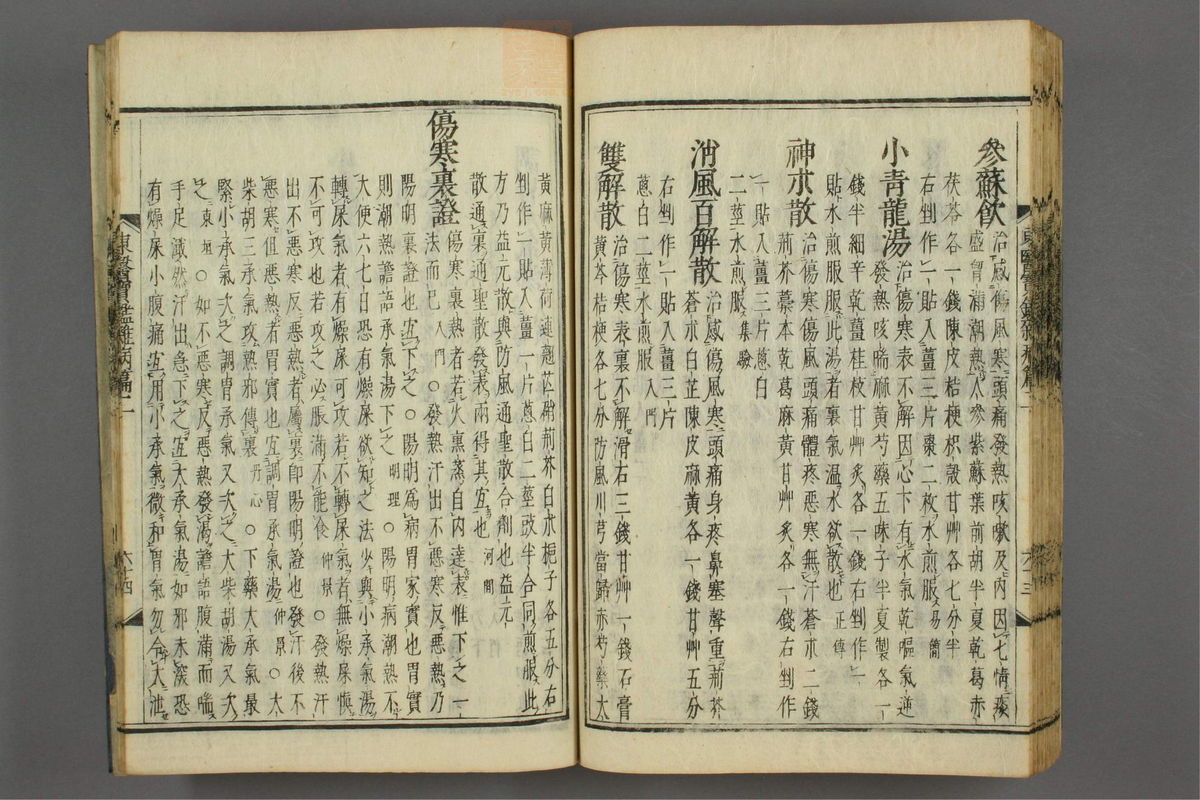 參蘇飮 治感傷風寒頭痛發熱咳嗽及內因七情痰
盛胷滿潮熱人參紫蘇葉前胡半夏乾葛赤
茯苓各一錢陳皮桔梗枳殼甘艸各七分半
右剉作一貼入薑三片棗二枚水煎服 易簡
小青龍湯 治傷寒表不解因心下有水氣乾嘔氣逆
發熱咳喘麻黃芍藥五味子半夏製各一
錢半細辛乾薑桂枝甘艸炙各一錢右剉作一
貼水煎服服此湯渴者裏氣溫水欲散也 正傳
神朮散 治傷寒傷風頭痛體疼惡寒無汗蒼朮二錢
荊芥藁本乾葛麻黃甘艸炙各一錢右剉作
一貼入薑三片葱白
二莖水煎服 集驗
消風百解散 治感傷風寒頭痛身疼鼻塞聲重荊芥
蒼朮白芷陳皮麻黃各一錢甘艸五分
右剉作一貼入薑三片
葱白二莖水煎服 入門
雙解散 治傷寒表裏不解滑石三錢甘艸一錢石膏
黃芩桔梗各七分防風川芎當歸赤芍藥大
黃麻黃薄荷連翹芒硝荊芥白朮梔子各五分右
剉作一貼入薑三片葱白二莖豉半合同煎服此
方乃益元散與防風通聖散合劑也益元
散通裏通聖散發表兩得其宜也 河間
傷寒裏證 傷寒裏熱者若火熏蒸自內達表惟下之一
法而已 入門 ○發熱汗出不惡寒反惡熱乃
陽明裏證也宜下之○陽明爲病胃家實也胃實
則潮熱譫語承氣湯下之 明理 ○陽明病潮熱不
大便六七日恐有燥屎欲知之法少與小承氣湯
轉屎氣者有燥屎可攻若不轉屎氣者無燥屎愼
不可攻也若攻之必脹滿不能食 仲景 ○發熱汗
出不惡寒反惡熱者屬裏卽陽明證也發汗後不
惡寒但惡熱者胃實也宜調胃承氣湯 仲景 ○大
柴胡三承氣攻熱邪傳裏 丹心 ○下藥大承氣最
緊小承氣次之調胃承氣又次之大柴胡湯又次
之 東垣 ○如不惡寒反惡熱發渴譫語腹滿而喘
手足濈然汗出急下之宜大承氣湯如邪未深恐
有燥屎小腹痛宜用小承氣微和胃氣勿令大泄
東醫寶鑑雜病篇二
六三
東醫寶鑑雜病篇二
六四